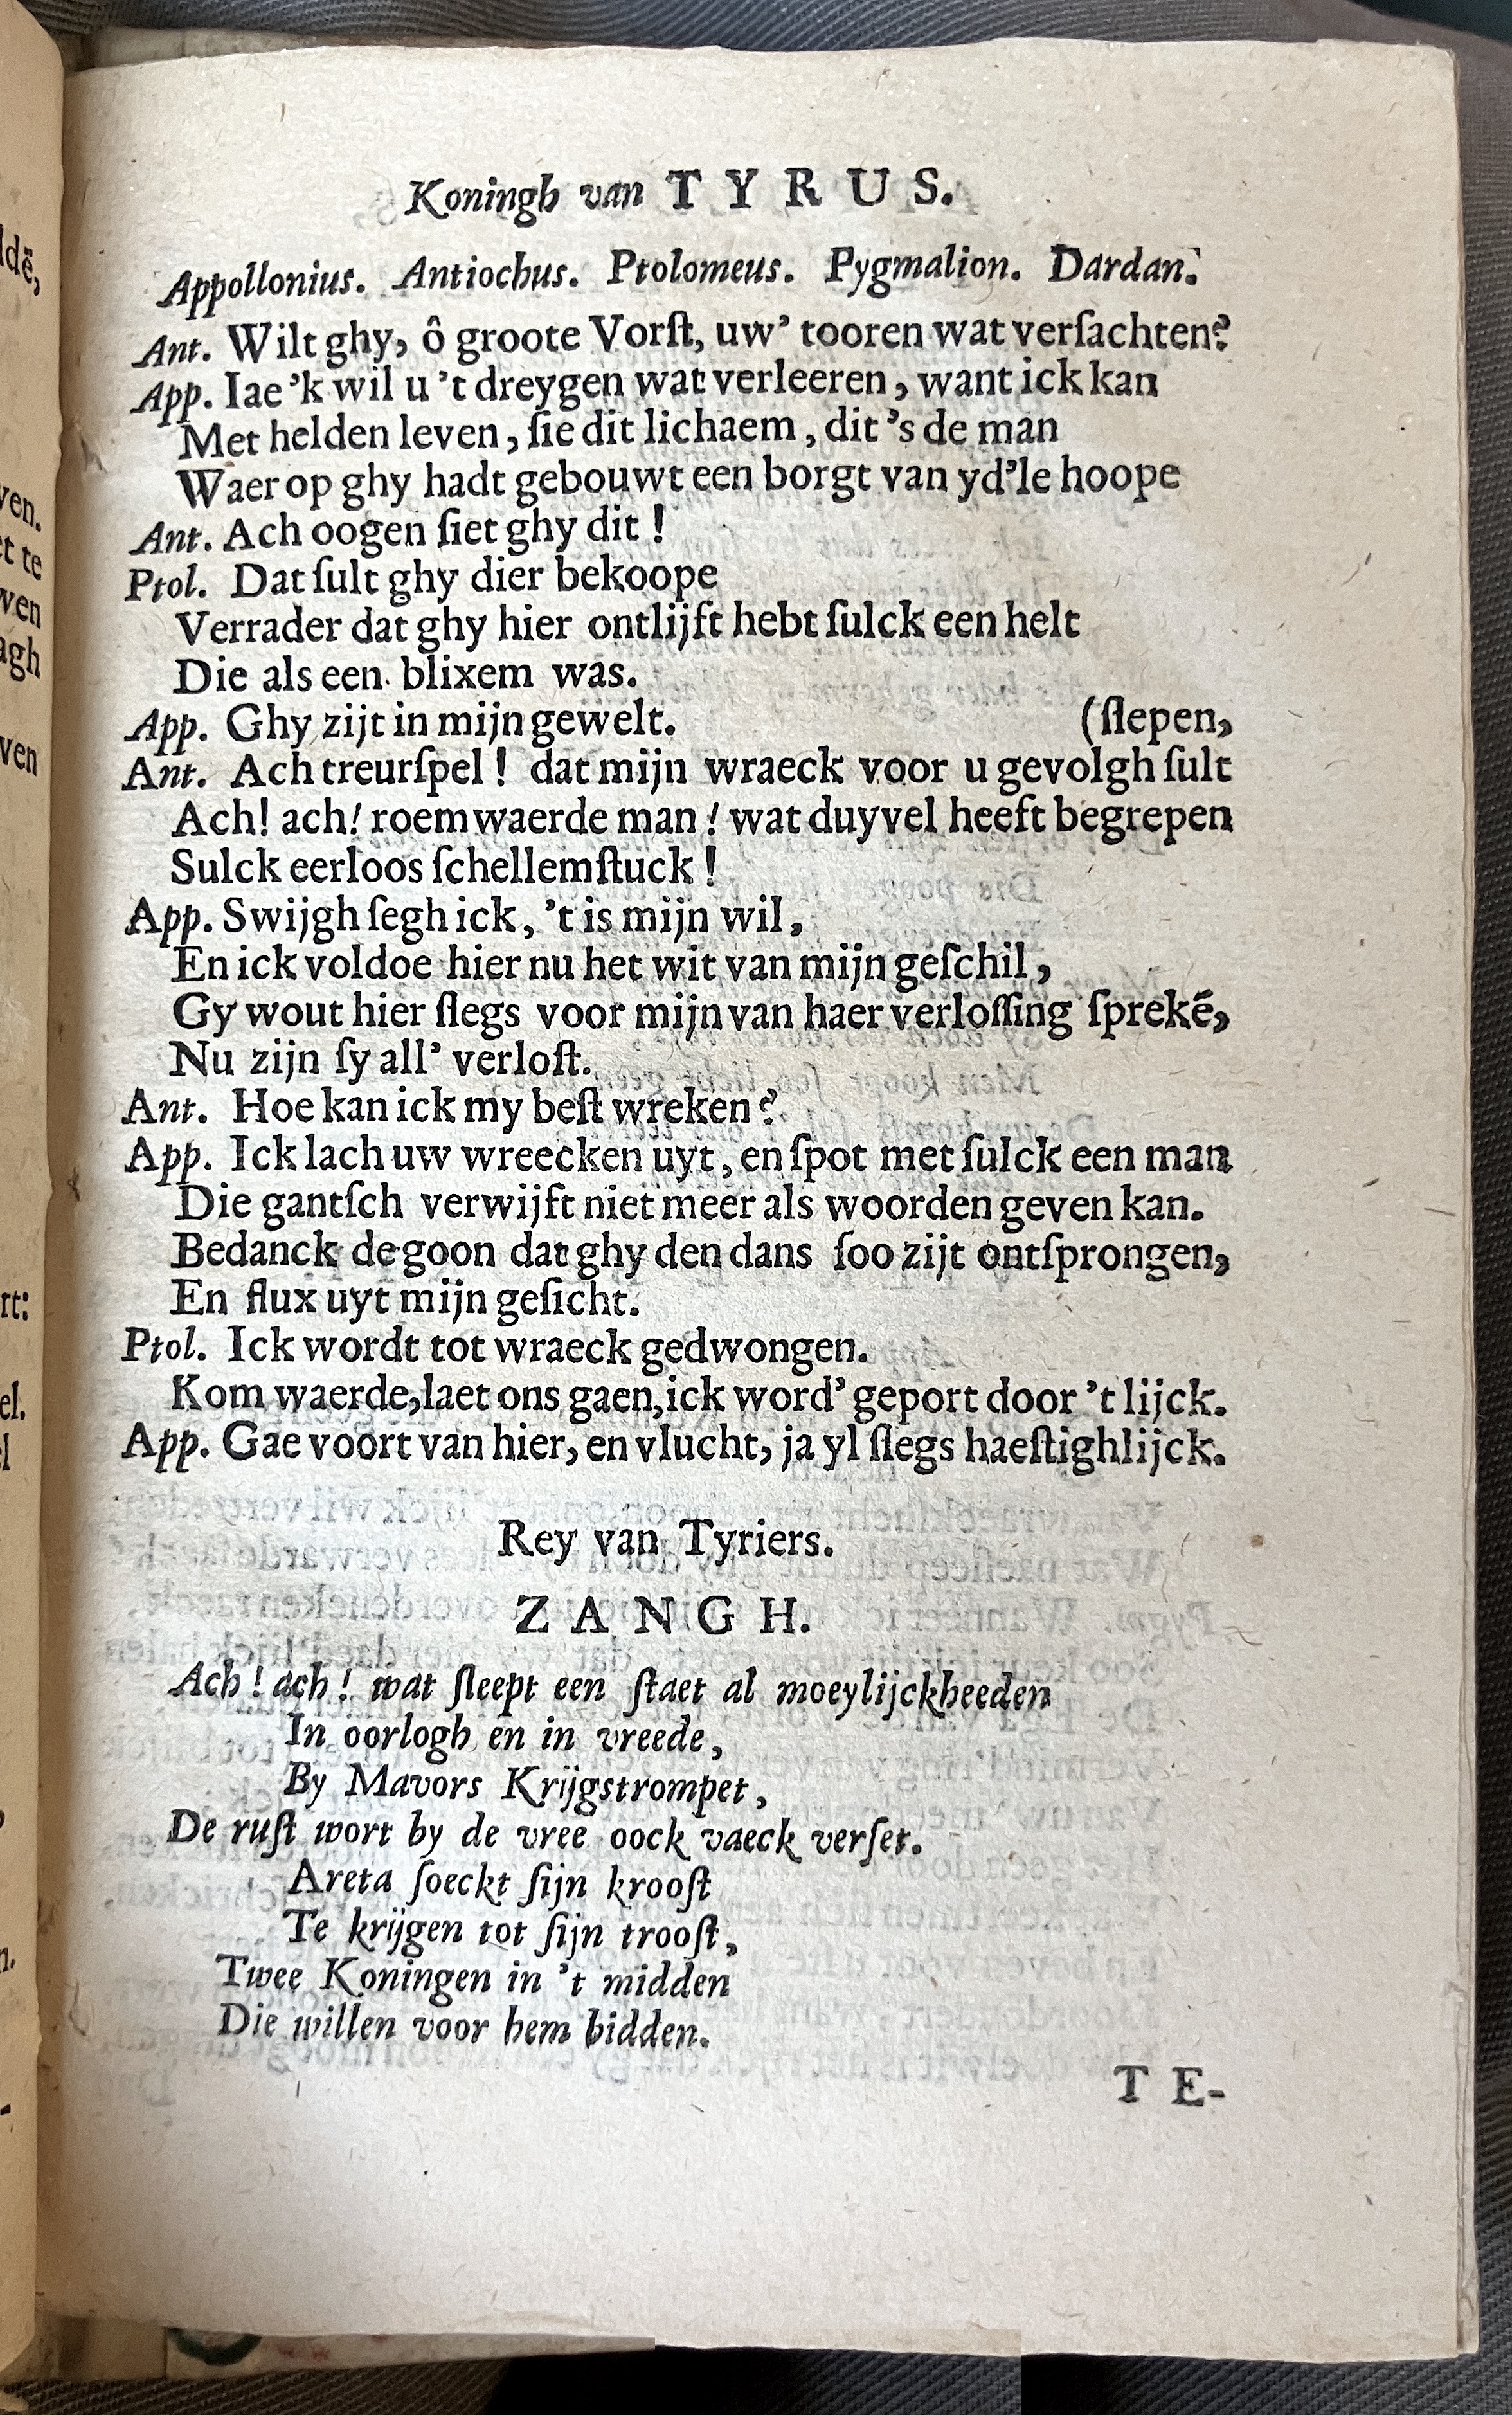 Koningh van TYRUS.
Appollonius. Antiochus. Ptolomeus. Pygmalion. Dardan.
Ant. Wilt ghy, ô groote Vorſt, uw’ tooren wat verſachten?
App. Iae ’k wil u ’t dreygen wat verleeren, want ick kan
Met helden leven, ſie dit lichaem, dit ’s de man
Waer op ghy hadt gebouwt een borgt van yd’le hoope
Ant. Ach oogen ſiet ghy dit!
Ptol. Dat ſult ghy dier bekoope
Verrader dat ghy hier ontlijft hebt ſulck een helt
Die als een blixem was.
App. Ghy zijt in mijn gewelt. (ſlepen,
Ant. Ach treurſpel! dat mijn wraeck voor u gevolgh ſult
Ach! ach! roemwaerde man! wat duyvel heeft begrepen
Sulck eerloos ſchellemſtuck!
App. Swijgh ſegh ick, ’t is mijn wil,
En ick voldoe hier nu het wit van mijn geſchil,
Gy wout hier ſlegs voor mijn van haer verloſſing ſprekē,
Nu zijn ſy all’ verloſt.
Ant. Hoe kan ick my beſt wreken?
App. Ick lach uw wreecken uyt, en ſpot met ſulck een man
Die gantſch verwijft niet meer als woorden geven kan.
Bedanck de goon dat ghy den dans ſoo zijt ontſprongen,
En flux uyt mijn geſicht.
Ptol. Ick wordt tot wraeck gedwongen.
Kom waerde, laet ons gaen, ick word’ geport door ’t lijck.
App. Gae voort van hier, en vlucht, ja yl ſlegs haeſtighlijck.
Rey van Tyriers.
ZANGH.
Ach! ach! wat ſleept een ſtaet al moeylijckheeden
In oorlogh en in vreede,
By Mavors Krijgstrompet,
De ruſt wort by de vree oock vaeck verſet.
Areta ſoeckt ſijn krooſt
Te krijgen tot ſijn trooſt,
Twee Koningen in ’t midden
Die willen voor hem bidden.
TE-